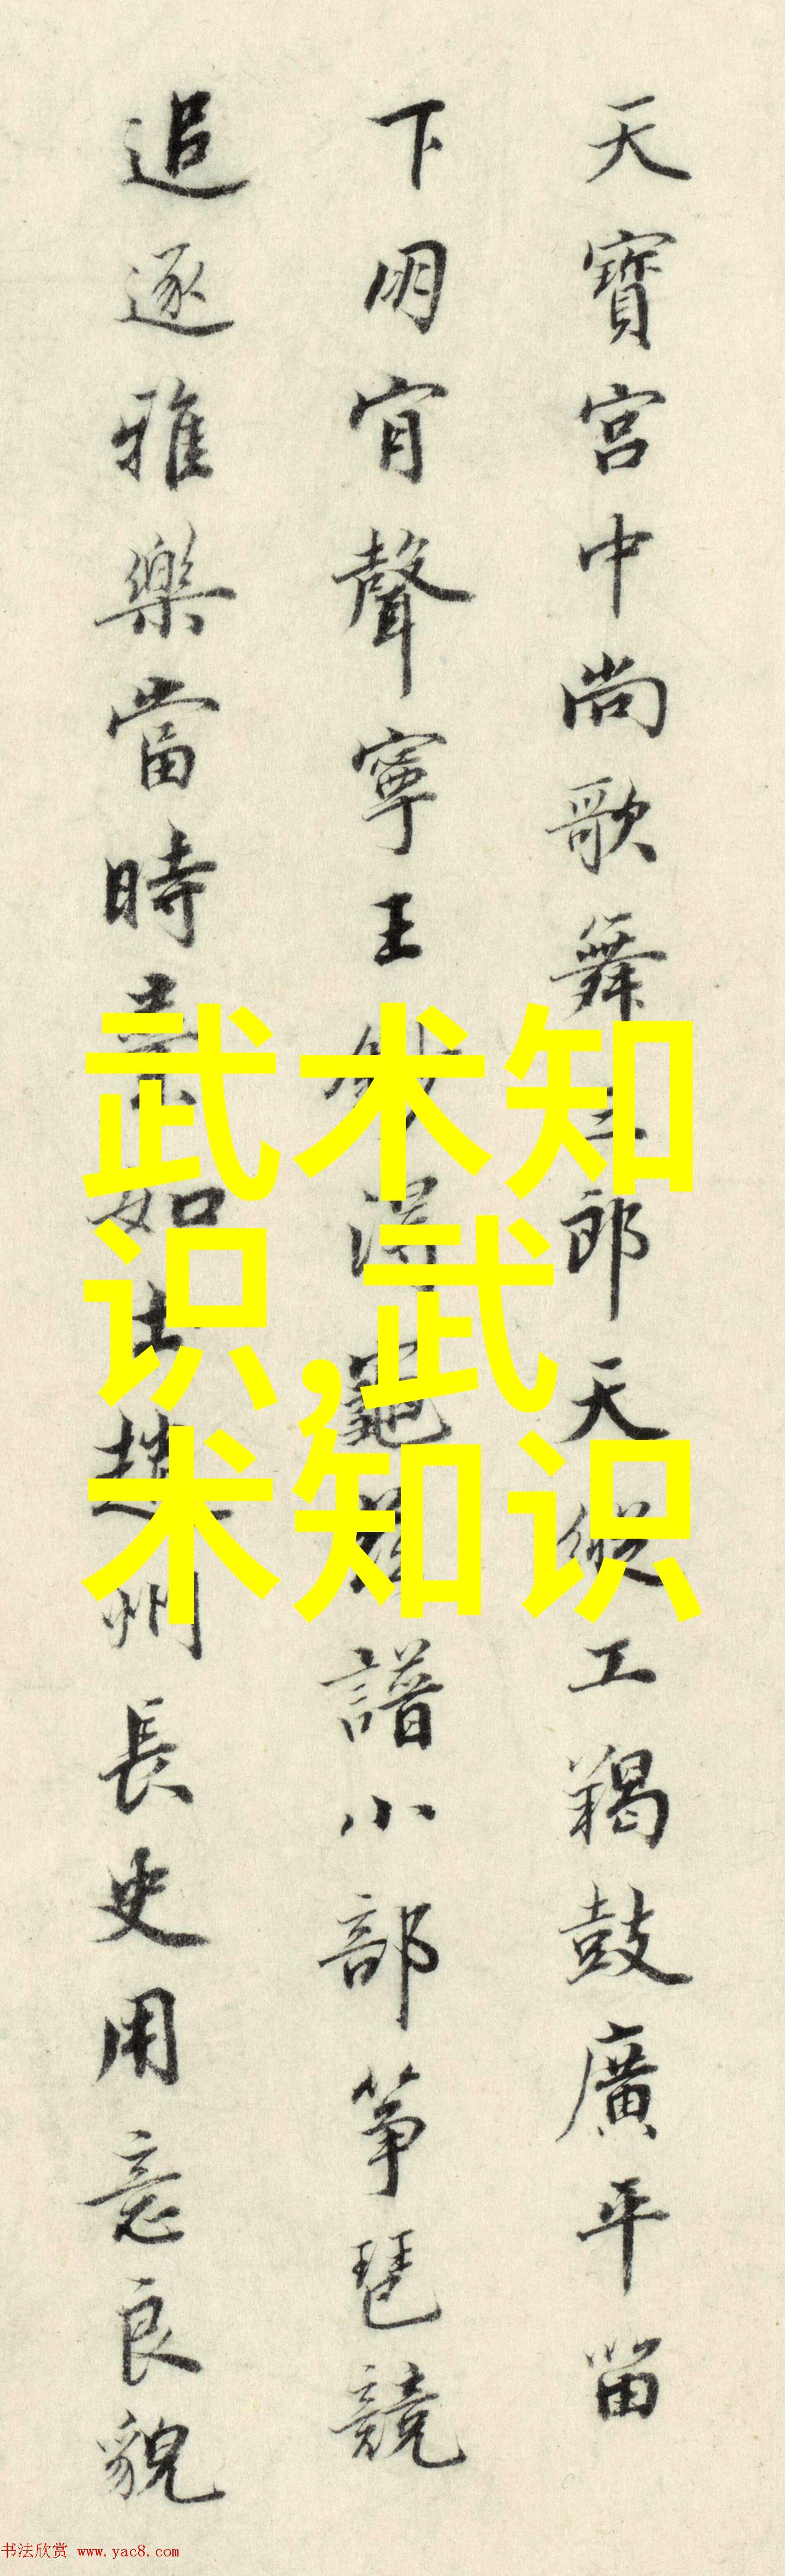 天寶宮中尚歌舞三郎天縱工羯鼓廣平留
下朙宵聲寧王譜小部筝琶競
追逐雅樂當時如古趙州長史用意良貌
武术知
识,武
术知识
书法欣赏 www.yac8.com